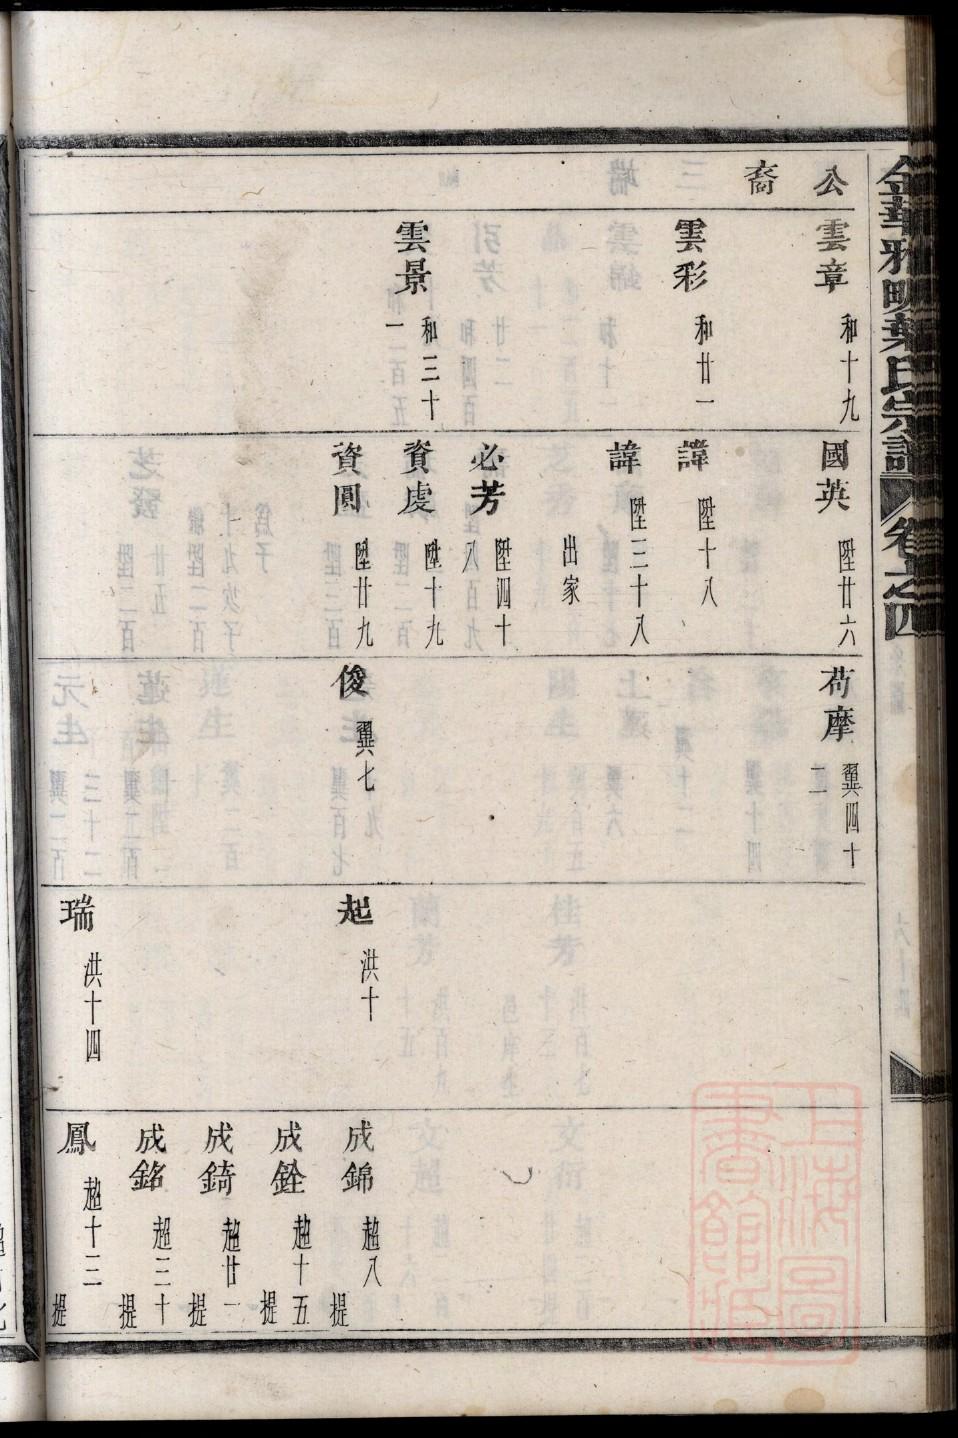 金華雅畈葉氏宗譜 卷之四
公 裔
雲章 和十九
雲彩 和廿一
雲景 和三十一
國英 陞廿六
諱 陞十八
諱 陞三十八 出家
必芳 陞四十八
資虔 陞十九
資圓 陞廿九
苟摩 翼四十二
俊 翼七
起 洪十
瑞 洪十四
成錦 超八 提
成銓 超十五 提
成錡 超廿一 提
成銘 超三十 提
鳳 超十三 提
上海圖書館藏